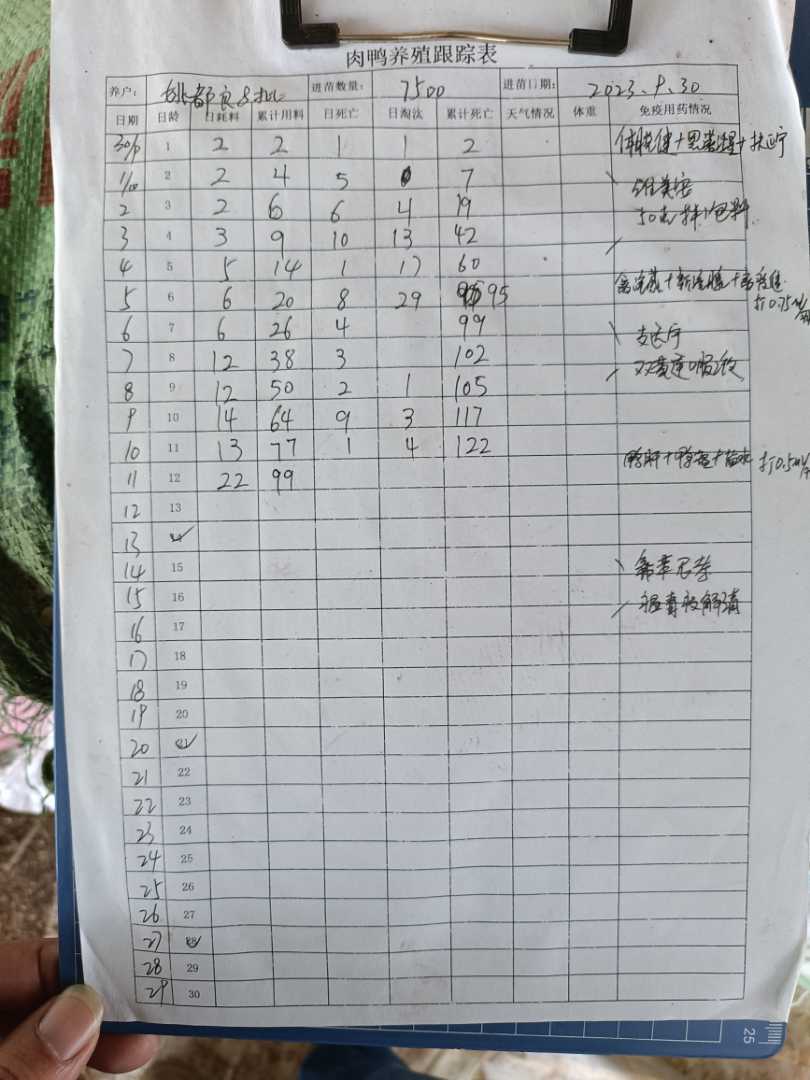 肉鸭养殖跟踪表
养户: 姚都良8批 进苗数量: 7500 进苗日期: 2023.9.30
日期 日龄 日耗料 累计用料 日死亡 日淘汰 累计死亡 天气情况 体重 免疫用药情况
30/9 1 2 2 1 1 2
1/10 2 2 4 5 0 7
2 3 2 6 6 4 19 50 包料
3 4 3 9 10 13 42
4 5 5 14 1 17 60
5 6 6 20 8 29 95 打0.75ml/
6 7 6 26 4 99
7 8 12 38 3 102 双黄连口服液
8 9 12 50 2 1 105
9 10 14 64 9 3 117
10 11 13 77 1 4 122 打0.5ml/
11 12 22 99
12 13
13
14 15
15 16
16 17
17 18
18 19
19 20
20 21
21 22
22 23
23 24
24 25
25 26
26 27
27 28
28 29
29 30
25